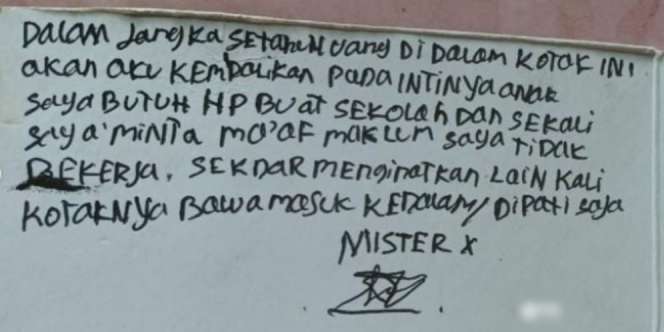 DALAM JANGKA SETAHUN UANG DI DALAM KOTAK INI
AKAN AKU KEMBALIKAN PADA INTINYA ANAK
SAYA BUTUH HP BUAT SEKOLAH DAN SEKALI
SAYA MINTA MA'AF MAKLUM SAYA TIDAK
BEKERJA, SEKDAR MENGINATKAN LAIN KALI
KOTAKNYA BAWA MASUK KEDALAM/DIPATI SAJA
MISTER X